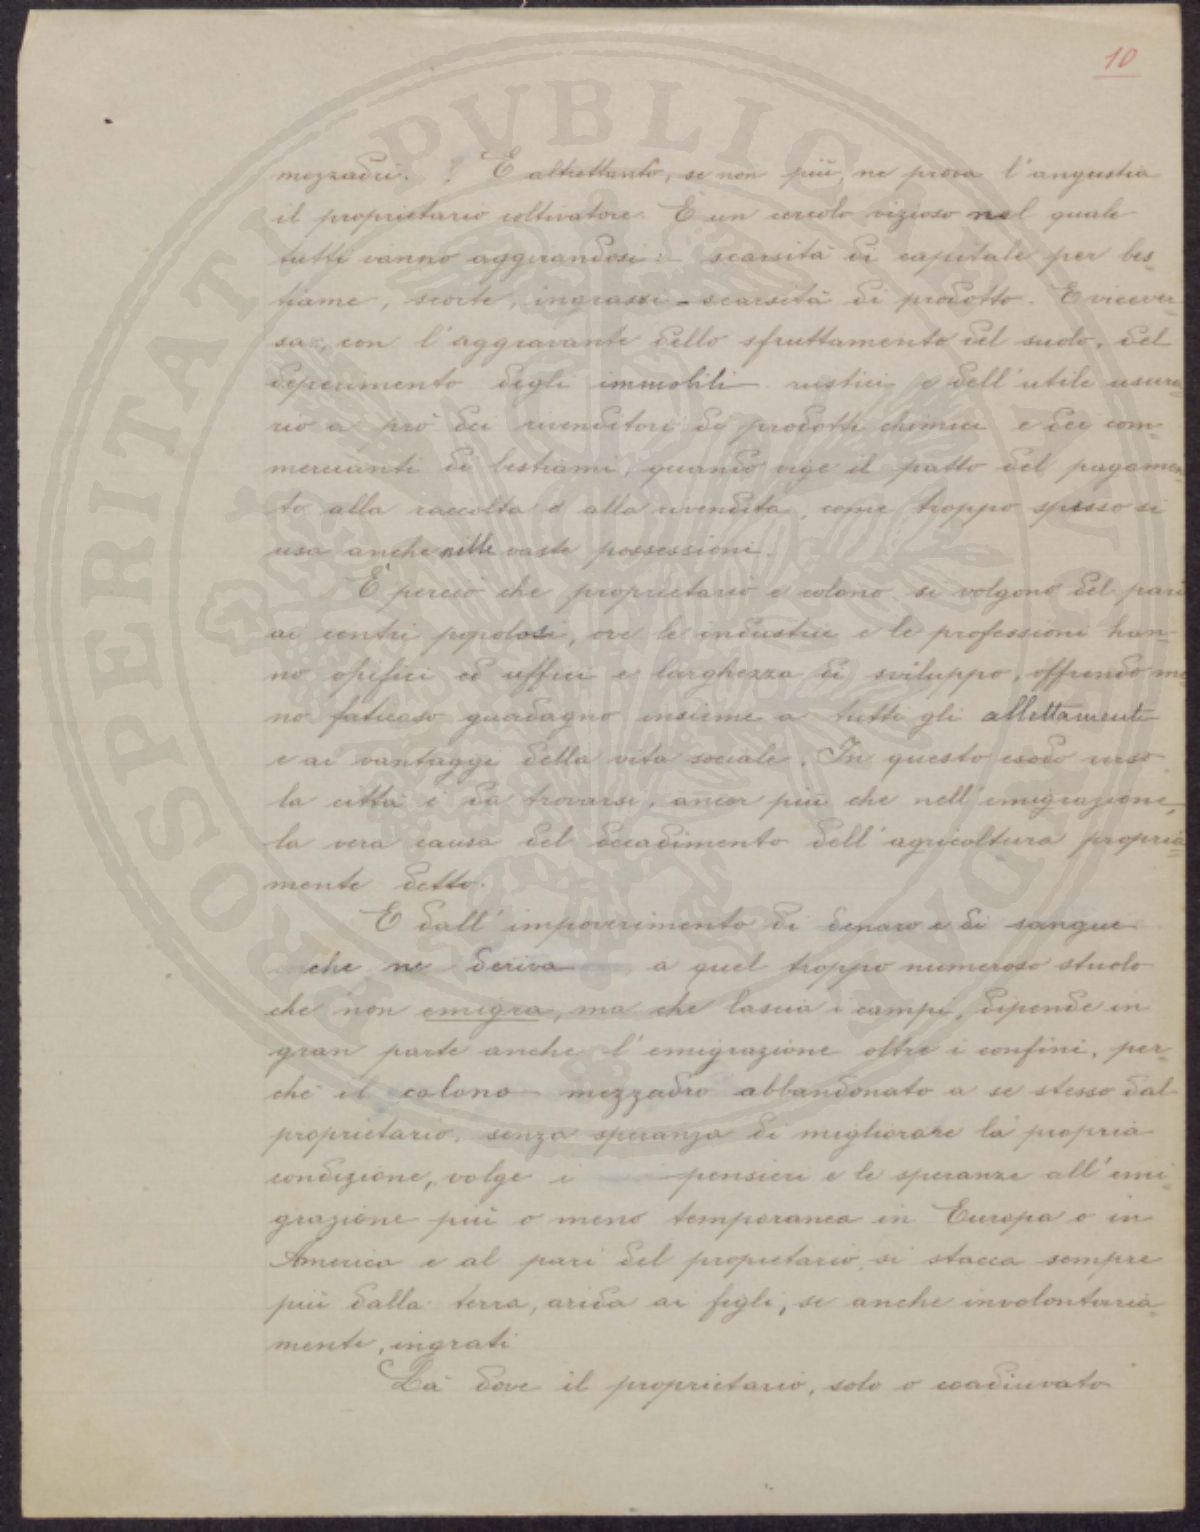 10
mezzadri. E altrettanto, se non più, ne prova l'angustia
il proprietario coltivatore. È un cercolo vizioso nel quale
tutti vanno aggirandosi: scarsità di capitale per bes-
tiame, scorte, ingrassi - scarsità di prodotto. E vicever-
sa, con l'aggravante dello sfruttamento del suolo, del
deperimento degli immobili rustici e dell'utile usura-
rio a prò dei rivenditori di prodotti chimici e dei com-
mercianti di bestiami, quando vige il patto del pagamen-
to alla raccolta o alla rivendita, come troppo spesso si
usa anche nelle vaste possessioni.
È perciò che proprietario e colono si volgono del pari
ai centri popolosi, ove le industrie e le professioni han-
no opifici ed uffici e larghezza di sviluppo, offrendo me-
no faticoso guadagno insieme a tutti gli allettamenti
e ai vantaggi della vita sociale. In questo esodo verso
la città è da trovarsi, ancor più che nell'emigrazione,
la vera causa del decadimento dell'agricoltura propria-
mente detto.
E dall'impoverimento di denaro e di sangue
che ne deriva a quel troppo numeroso stuolo
che non emigra, ma che lascia i campi, dipende in
gran parte anche l'emigrazione oltre i confini, per-
chè il colono mezzadro abbandonato a se stesso dal
proprietario, senza speranza di migliorare la propria
condizione, volge i pensieri e le speranze all'emi-
grazione più o meno temporanea in Europa o in
America e al pari del propietario, si stacca sempre
più dalla terra, arida ai figli, se anche involontaria-
mente, ingrati
Là dove il proprietario, solo o coadiuvato
PROSPERITATI PVBLICAE